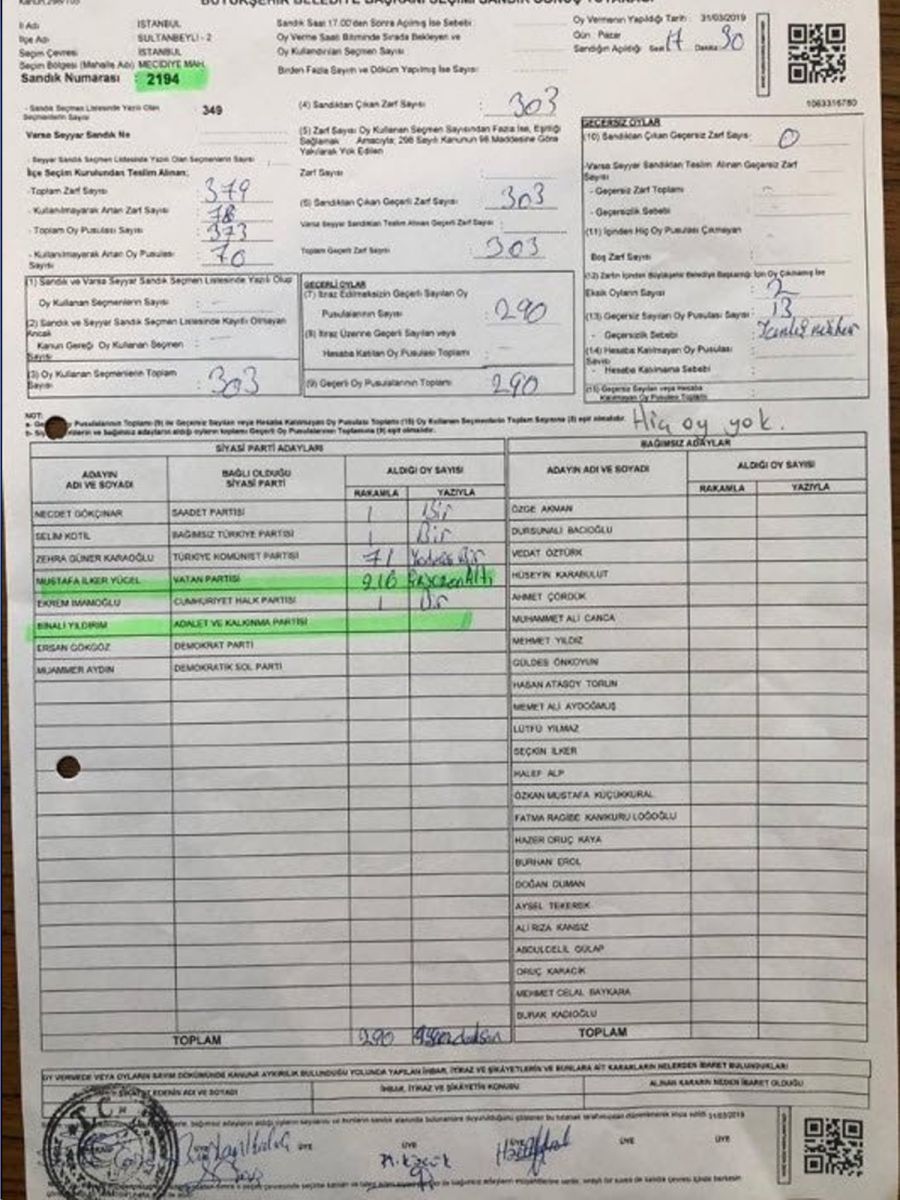 BÜYÜKŞEHİR BELEDİYE BAŞKANI SEÇİMİ SANDIK SONUÇ TUTANAĞI
İl Adı : İSTANBUL
İlçe Adı : SULTANBEYLİ - 2
Seçim Çevresi : İSTANBUL
Seçim Bölgesi (Mahalle Adı) MECİDİYE MAH.
Sandık Numarası : 2194
Sandık Saat 17.00'den Sonra Açılmış İse Sebebi :
Oy Verme Saati Bitiminde Sırada Bekleyen ve
Oy Kullandırılan Seçmen Sayısı :
Birden Fazla Sayım ve Döküm Yapılmış İse Sayısı :
Oy Vermenin Yapıldığı Tarih : 31/03/2019
Gün Pazar
Sandığın Açıldığı Saat 17 Dakika 30
1063316780
- Sandık Seçmen Listesinde Yazılı Olan
Seçmenlerin Sayısı : 349
Varsa Seyyar Sandık No :
- Seyyar Sandık Seçmen Listesinde Yazılı Olan Seçmenlerin Sayısı :
İlçe Seçim Kurulundan Teslim Alınan;
-Toplam Zarf Sayısı : 379
- Kullanılmayarak Artan Zarf Sayısı : 76
- Toplam Oy Pusulası Sayısı : 373
- Kullanılmayarak Artan Oy Pusulası
Sayısı : 70
(4) Sandıktan Çıkan Zarf Sayısı : 303
(5) Zarf Sayısı Oy Kullanan Seçmen Sayısından Fazla İse, Eşitliği
Sağlamak Amacıyla; 298 Sayılı Kanunun 98.Maddesine Göre
Yakılarak Yok Edilen
Zarf Sayısı :
(6) Sandıktan Çıkan Geçerli Zarf Sayısı : 303
Varsa Seyyar Sandıktan Teslim Alınan Geçerli Zarf Sayısı :
Toplam Geçerli Zarf Sayısı : 303
GEÇERSİZ OYLAR
(10) Sandıktan Çıkan Geçersiz Zarf Sayısı : 0
-Varsa Seyyar Sandıktan Teslim Alınan Geçersiz Zarf
Sayısı
- Geçersiz Zarf Toplamı :
- Geçersizlik Sebebi :
(11) İçinden Hiç Oy Pusulası Çıkmayan
Boş Zarf Sayısı :
(12) Zarfın İçinden Büyükşehir Belediye Başkanlığı İçin Oy Çıkmamış İse
Eksik Oyların Sayısı : 2
(13) Geçersiz Sayılan Oy Pusulası Sayısı : 13
- Geçersizlik Sebebi :
(14) Hesaba Katılmayan Oy Pusulası
Sayısı :
- Hesaba Katılmama Sebebi :
(15) Geçersiz Sayılan veya Hesaba
Katılmayan Oy Pusulaları Toplamı
(1) Sandık ve Varsa Seyyar Sandık Seçmen Listesinde Yazılı Olup
Oy Kullanan Seçmenlerin Sayısı :
(2) Sandık ve Seyyar Sandık Seçmen Listesinde Kayıtlı Olmayan
Ancak
Kanun Gereği Oy Kullanan Seçmen
Sayısı :
(3) Oy Kullanan Seçmenlerin Toplam
Sayısı : 303
GEÇERLİ OYLAR
(7) İtiraz Edilmeksizin Geçerli Sayılan Oy
Pusulalarının Sayısı : 290
(8) İtiraz Üzerine Geçerli Sayılan veya
Hesaba Katılan Oy Pusulası Toplamı :
(9) Geçerli Oy Pusulalarının Toplamı : 290
NOT:
Hiç oy yok.
SİYASİ PARTİ ADAYLARI
ADAYIN ADI VE SOYADI
BAĞLI OLDUĞU SİYASİ PARTİ
ALDIĞI OY SAYISI
RAKAMLA YAZIYLA
NECDET GÖKÇINAR SAADET PARTİSİ 1 Bir
SELİM KOTİL BAĞIMSIZ TÜRKİYE PARTİSİ 1 Bir
ZEHRA GÜNER KARAOĞLU TÜRKİYE KOMÜNİST PARTİSİ 71 Yetmiş Bir
MUSTAFA İLKER YÜCEL VATAN PARTİSİ 216
EKREM İMAMOĞLU CUMHURİYET HALK PARTİSİ 1 Bir
BİNALİ YILDIRIM ADALET VE KALKINMA PARTİSİ
ERSAN GÖKGÖZ DEMOKRAT PARTİ
MUAMMER AYDIN DEMOKRATİK SOL PARTİ
TOPLAM 290
BAĞIMSIZ ADAYLAR
ADAYIN ADI VE SOYADI
ALDIĞI OY SAYISI
RAKAMLA YAZIYLA
ÖZGE AKMAN
DURSUNALİ BACIOĞLU
VEDAT ÖZTÜRK
HÜSEYİN KARABULUT
AHMET ÇÖRDÜK
MUHAMMET ALİ CANCA
MEHMET YILDIZ
GÜLDES ÖNKOYUN
HASAN ATASOY TORUN
MEMET ALİ AYDOĞMUŞ
LÜTFÜ YILMAZ
SEÇKİN İLKER
HALEF ALP
ÖZKAN MUSTAFA KÜÇÜKKURAL
FATMA RAGİBE KANIKURU LOĞOĞLU
HAZER ORUÇ KAYA
BURHAN EROL
DOĞAN DUMAN
AYSEL TEKEREK
ALİ RIZA KANSIZ
ABDULCELİL GÜLAP
ORUÇ KARACIK
MEHMET CELAL BAYKARA
BURAK KADIOĞLU
TOPLAM
OY VERMEDE VEYA OYLARIN SAYIM DÖKÜMÜNDE KANUNA AYKIRILIK BULUNDUĞU YOLUNDA YAPILAN İHBAR, İTİRAZ VE ŞİKAYETLERİN VE BUNLARA AİT KARARLARIN NELERDEN İBARET BULUNDUKLARI
ADI VE SOYADI
İHBAR, İTİRAZ VE ŞİKAYETİN KONUSU
ALINAN KARARIN NEDEN İBARET OLDUĞU
31/03/2019
T.C.
ÜYE ÜYE ÜYE ÜYE ÜYE